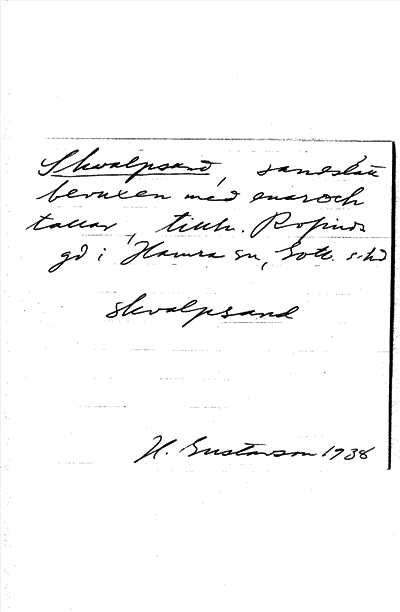 Skvalpsand, sandslätt
bevuxen med enar och
tallar, tillh. Rofinds
gd i Hamra sn, Gotl. s. hd
skvalpsand
H. Gustavson 1938